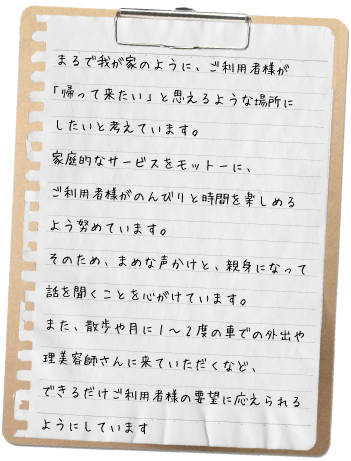 まるで我が家のように、ご利用者様が
「帰って来たい」と思えるような場所に
したいと考えています。
家庭的なサービスをモットーに、
ご利用者様がのんびりと時間を楽しめる
よう努めています。
そのため、まめな声かけと、親身になって
話を聞くことを心がけています。
また、散歩や月に1～2度の車での外出や
理美容師さんに来ていただくなど、
できるだけご利用者様の要望に応えられる
ようにしています